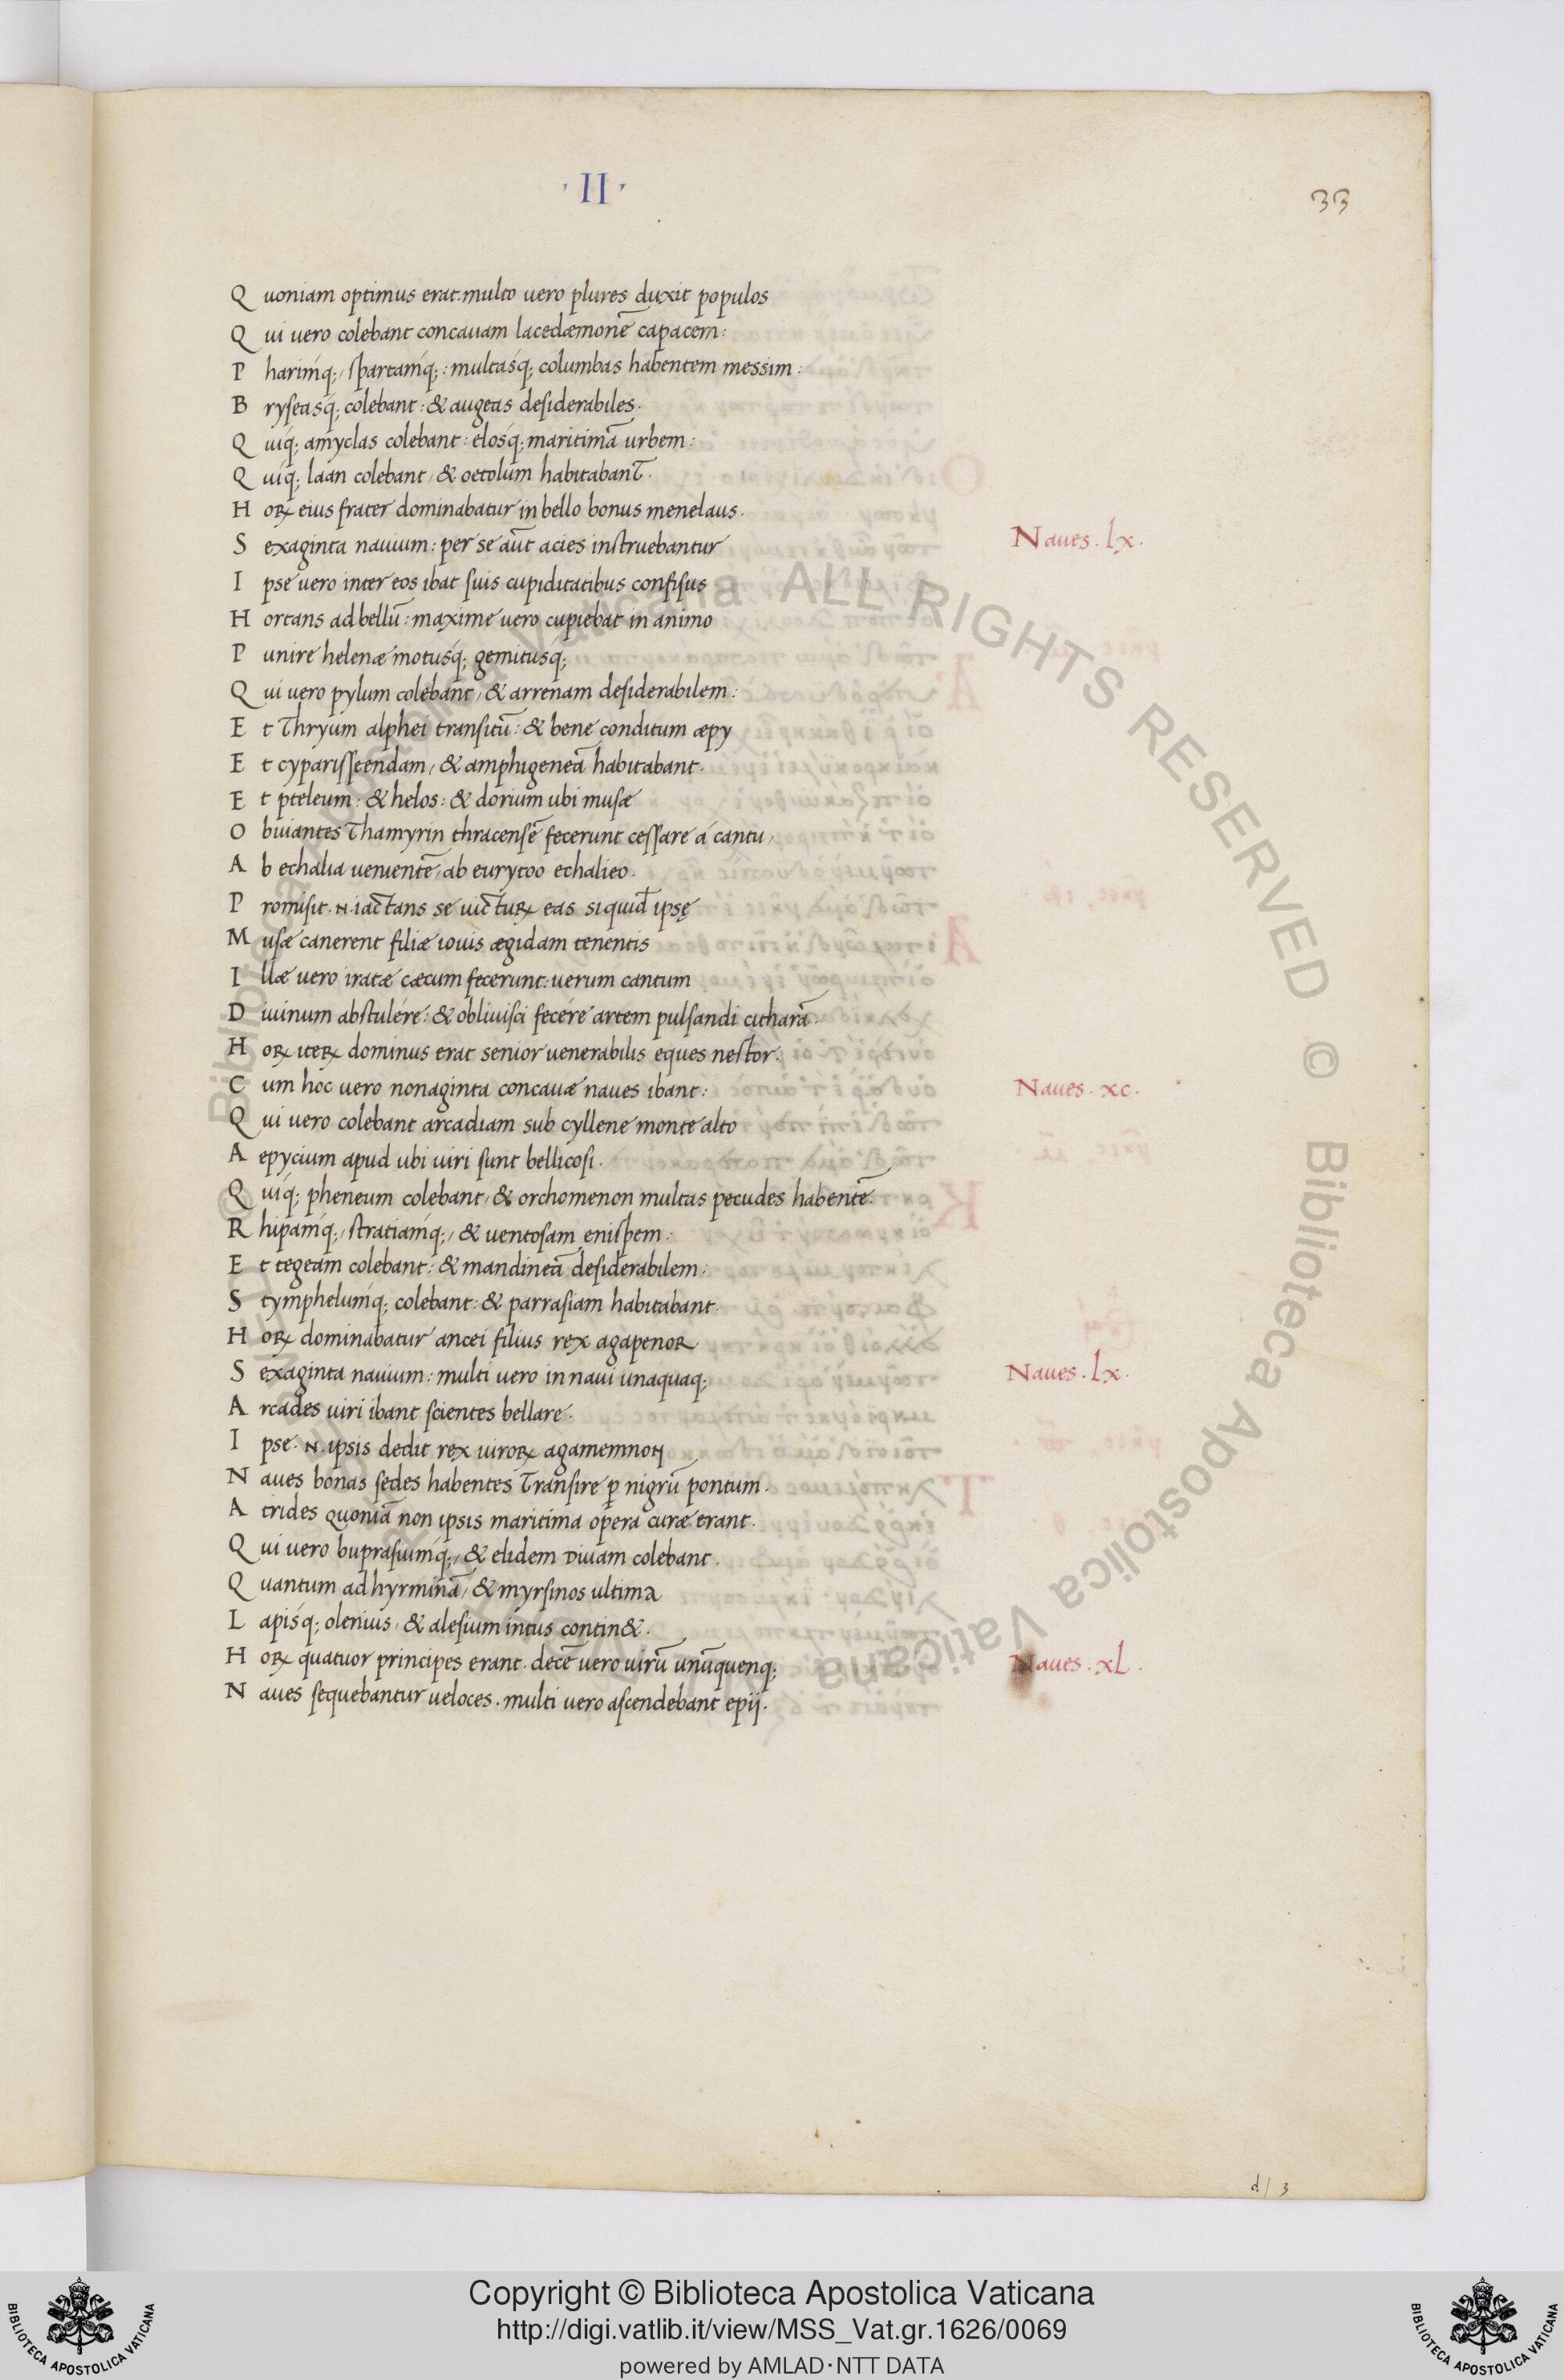 · II ·
33
Quoniam optimus erat. multo uero plures duxit populos
Qui uero colebant concauam lacedæmonē capacem:
Pharimq;, spartamq;: multasq; columbas habentem messim:
Bryseasq; colebant: & augeas desiderabiles.
Quiq; amyclas colebant: elosq; maritimā urbem:
Quiq; laan colebant, & oetolum habitabant̄.
Hoꝝ eius frater dominabatur in bello bonus menelaus.
Sexaginta nauium: per se aūt acies instruebantur
Naues. lx.
Ipse uero inter eos ibat suis cupiditatibus confisus
Hortans ad bellū: maxime uero cupiebat in animo
Punire helenæ motusq; gemitusq;
Qui uero pylum colebant, & arrenam desiderabilem:
Et Thryum alphei transitū: & bene conditum æpy
Et cyparisseendam, & amphigeneā habitabant.
Et pteleum: & helos: & dorium ubi musæ
Obuiantes Thamyrin thracensē fecerunt cessare á cantu,
Ab echalia uenientē, ab eurytoo echalieo.
Promisit. N. iactans se uictuꝝ eas siquid̄ ipsę
Musæ canerent filiæ iouis ægidam tenentis
Illæ uero iratæ cæcum fecerunt: uerum cantum
Diuinum abstulére: & obliuisci fecére artem pulsandi citharā.
Hoꝝ iteꝝ dominus erat senior uenerabilis eques nestor.
Cum hoc uero nonaginta concauæ naues ibant:
Naues. xc.
Qui uero colebant arcadiam sub cyllene monte alto
Aepycium apud ubi uiri sunt bellicosi.
Quiq; pheneum colebant, & orchomenon multas pecudes habentē.
Rhipamq;, stratiamq;, & uentosam enispem:
Et tegeam colebant: & mandineā desiderabilem:
Stymphelumq; colebant: & parrasiam habitabant.
Hoꝝ dominabatur ancei filius rex agapenor
Sexaginta nauium: multi uero in naui unaquaq;
Naues. lx.
Arcades uiri ibant scientes bellare.
Ipse. N. ipsis dedit rex uiroꝝ agamemnon
Naues bonas sedes habentes Transire ꝑ nigrū pontum.
Atrides quoniā non ipsis maritima opera curæ erant.
Qui uero buprasiumq;, & elidem diuam colebant.
Quantum ad hyrminā, & myrsinos ultima
Lapisq; olenius, & alesium intus contin&.
Hoꝝ quatuor principes erant. decē uero uirū unūquenq;
Naues. xL.
Naues sequebantur ueloces. multi uero ascendebant epij.
d / 3
© Biblioteca Apostolica Vaticana ALL RIGHTS RESERVED © Biblioteca Apostolica Vaticana
Copyright © Biblioteca Apostolica Vaticana
http://digi.vatlib.it/view/MSS_Vat.gr.1626/0069
powered by AMLAD·NTT DATA
BIBLIOTECA APOSTOLICA VATICANA
BIBLIOTECA APOSTOLICA VATICANA